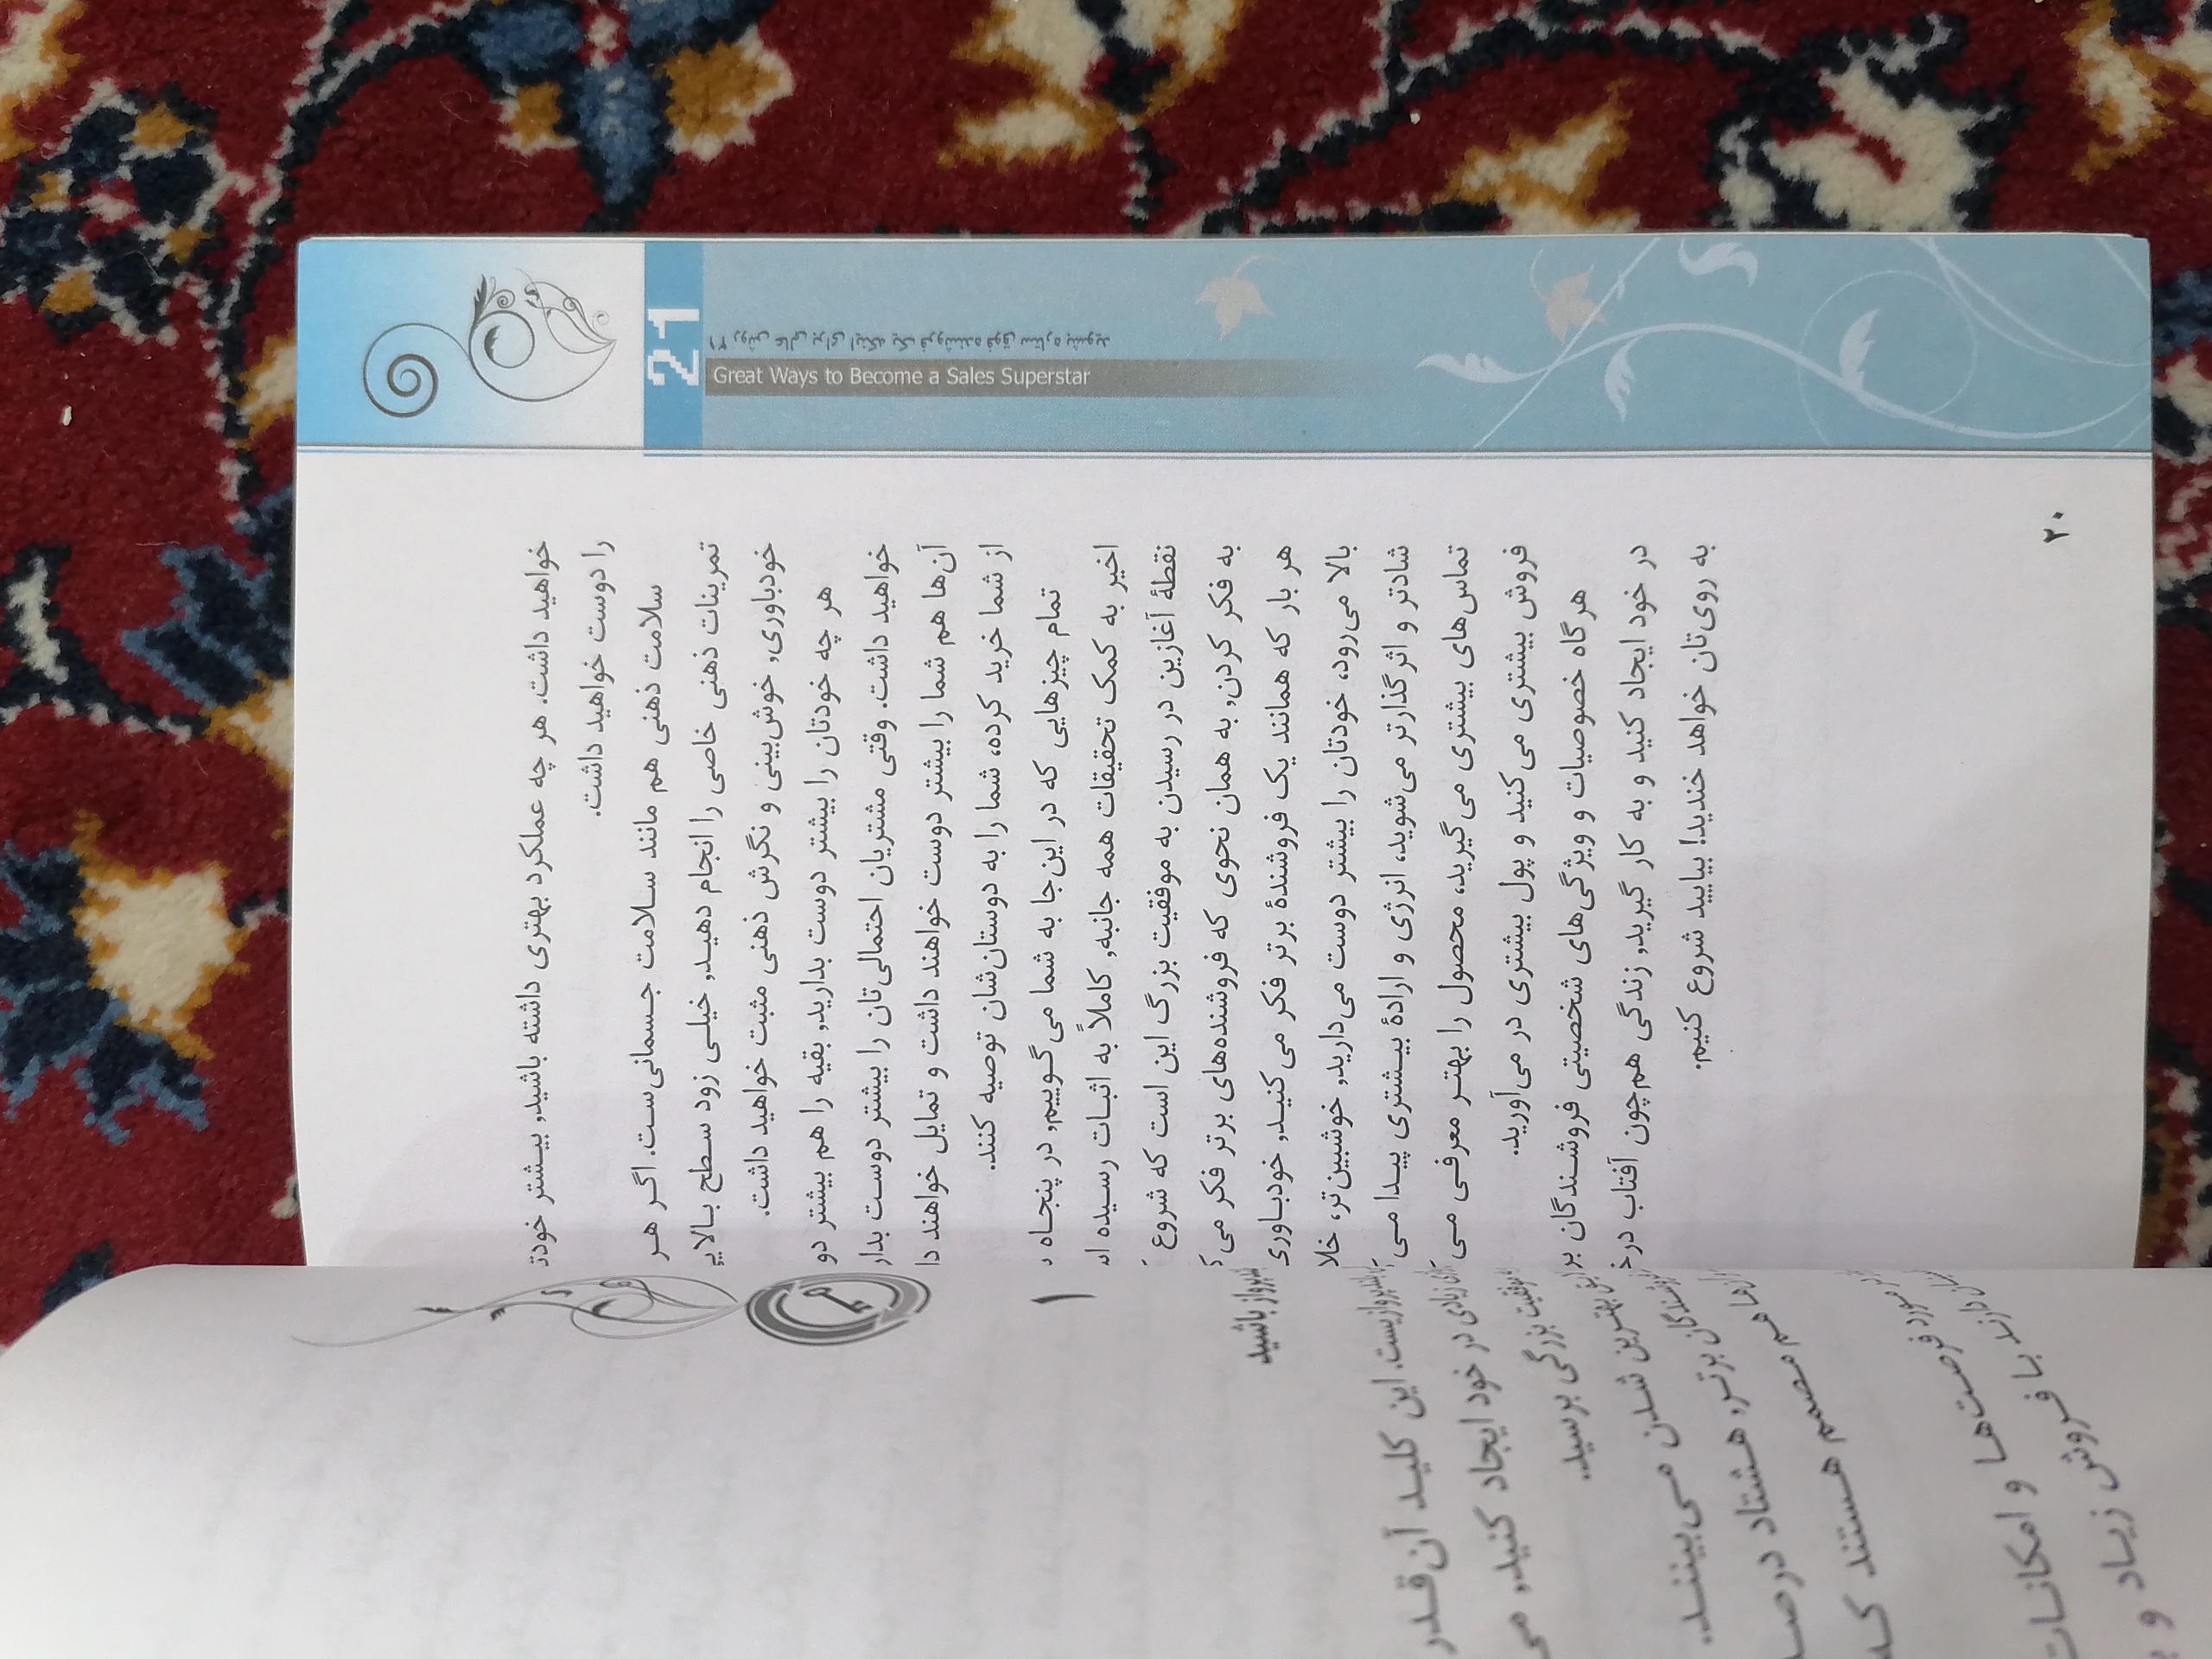 21
۲۱ روش عالی برای اینکه یک فروشنده فوق ستاره بشوید
Great Ways to Become a Sales Superstar
خواهید داشت. هر چه عملکرد بهتری داشته باشید, بیشتر خودتـ
را دوست خواهید داشت.
سلامت ذهنی هم مانند سلامت جسمانی‌ست. اگر هر
تمرینات ذهنی خاصی را انجام دهید, خیلی زود سطح بالایی
خودباوری, خوش‌بینی و نگرش ذهنی مثبت خواهید داشت.
هر چه خودتان را بیشتر دوست بدارید, بقیه را هم بیشتر دو
خواهید داشت. وقتی مشتریان احتمالی‌تان را بیشتر دوست بدار
آن‌ها هم شما را بیشتر دوست خواهند داشت و تمایل خواهند دا
از شما خرید کرده، شما را به دوستان‌شان توصیه کنند.
تمام چیزهایی که در این‌جا به شما می‌گوییم, در پنجاه
اخیر به کمک تحقیقات همه جانبه, کاملاً به اثبات رسیده
نقطهٔ آغازین در رسیدن به موفقیت بزرگ این است که شروع
به فکر کردن, به همان نحوی که فروشنده‌های برتر فکر می
هر بار که همانند یک فروشندهٔ برتر فکر می‌کنید, خودباوری
بالا می‌رود، خودتان را بیشتر دوست می‌دارید, خوشبین‌تر، خلا
شادتر و اثرگذارتر می‌شوید، انرژی و ارادهٔ بیشتری پیدا می
تماس‌های بیشتری می‌گیرید، محصول را بهتر معرفی می
فروش بیشتری می‌کنید و پول بیشتری در می‌آورید.
هرگاه خصوصیات و ویژگی‌های شخصیتی فروشندگان بر
در خود ایجاد کنید و به کار گیرید, زندگی هم‌چون آفتاب درخـ
به روی‌تان خواهد خندید! بیایید شروع کنیم.
۲۰
۱
باشید
این کلید آن‌قدر
در خود ایجاد کنید, می
بزرگی برسید.
بهترین شدن می‌بینند.
برتر, هشتاد درصد
هم مصمم هستند که
مورد فرصت‌ها و امکانات
دارند با فروش زیاد و